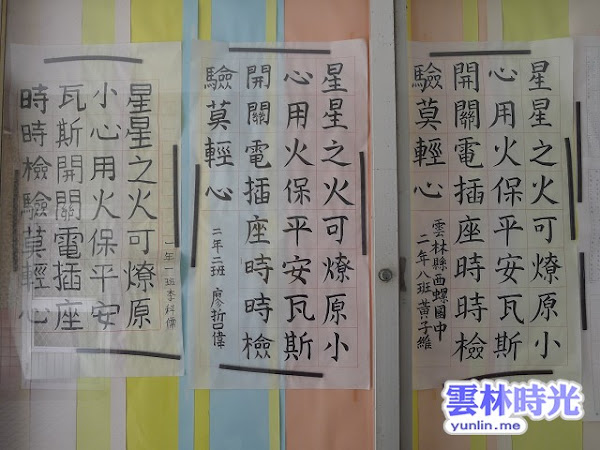 星星之火可燎原
小心用火保平安
瓦斯開關電插座
時時檢驗莫輕心
年一班李
星星之火可燎原小
心用火保平安瓦斯
開關電插座時時檢
驗莫輕心
二年二班 廖哲偉
星星之火可燎原小
心用火保平安瓦斯
開關電插座時時檢
驗莫輕心
雲林縣西螺國中
二年八班 黃子維
雲林時光
yunlin.me